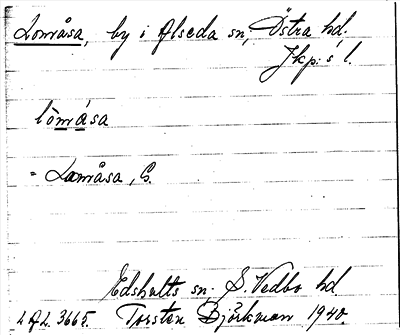 Lomåsa, by i Alseda sn, Östra hd.
Jkp:s l.
lo᷇måsa
= Lomåsa, G.
Edshults sn. S. Vedbo hd
LAL. 3665. Torsten Björkman 1940